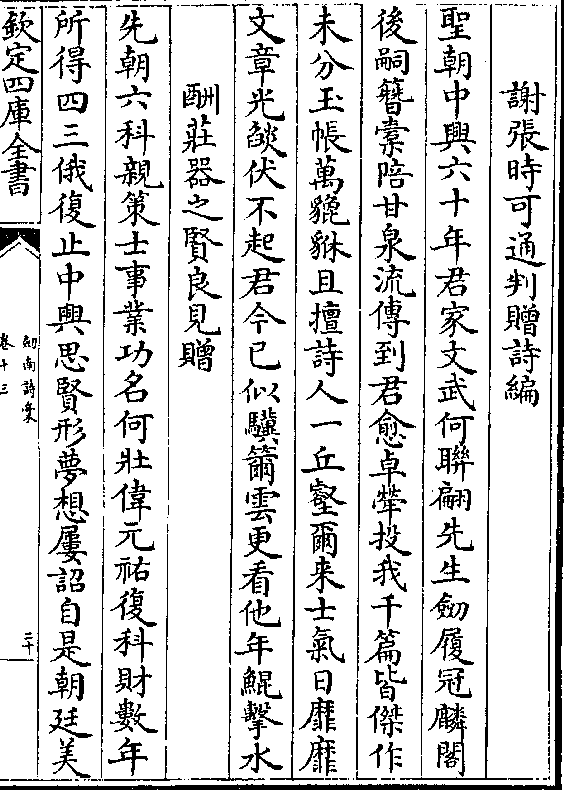 謝張時可通判贈詩編
聖朝中興六十年君家文武何聯翩先生劒履冠麟閣
後嗣簪橐陪甘泉流傳到君愈卓犖投我千篇皆傑作
未分玉帳萬貔貅且擅詩人一丘壑爾来士氣日靡靡
文章光燄伏不起君今已似驥籋雲更看他年鯤擊水
酬莊器之賢良見贈
先朝六科親策士事業功名何壯偉元祐復科財數年
所得四三俄復止中興思賢形夢想屢詔自是朝廷美
欽定四庫全書
劒南詩稾
卷十三
三十